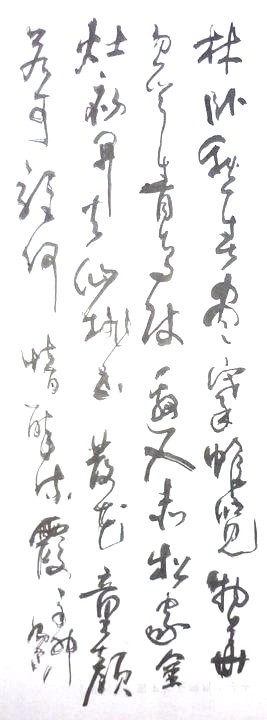 林卧愁春尽搴帷览物华
忽逢青鸟使邀入赤松家金
灶初开火仙桃正发花童颜
若可驻何惜醉流霞